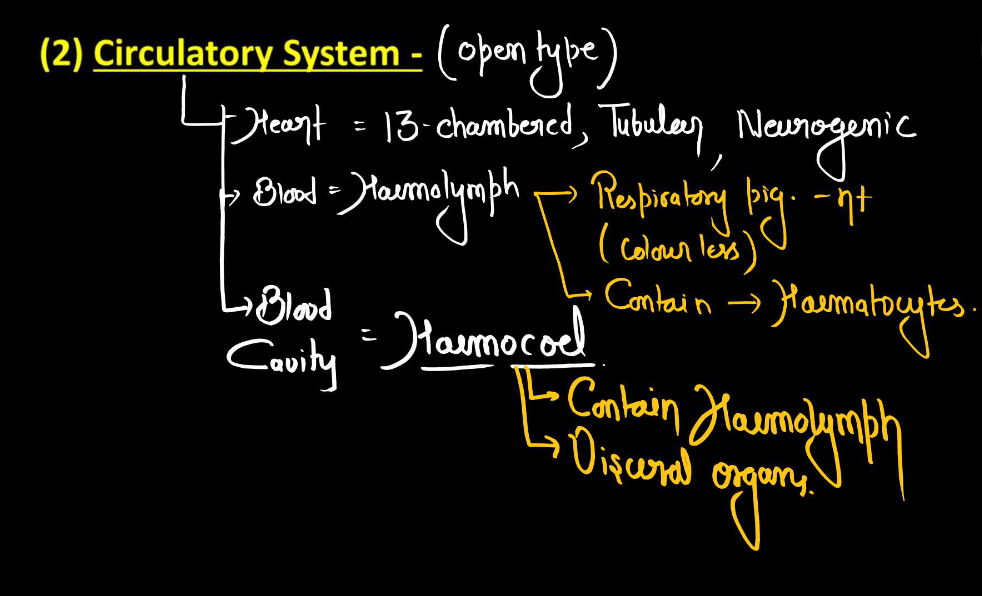 (2) Circulatory System - (open type)
Heart = 13-chambered, Tubular, Neurogenic
Blood = Haemolymph → Respiratory pig. -nt
(Colour less)
→ Contain → Haematocytes.
→ Blood
Cavity = Haemocoel
→ Contain Haemolymph
→ Visceral organs.